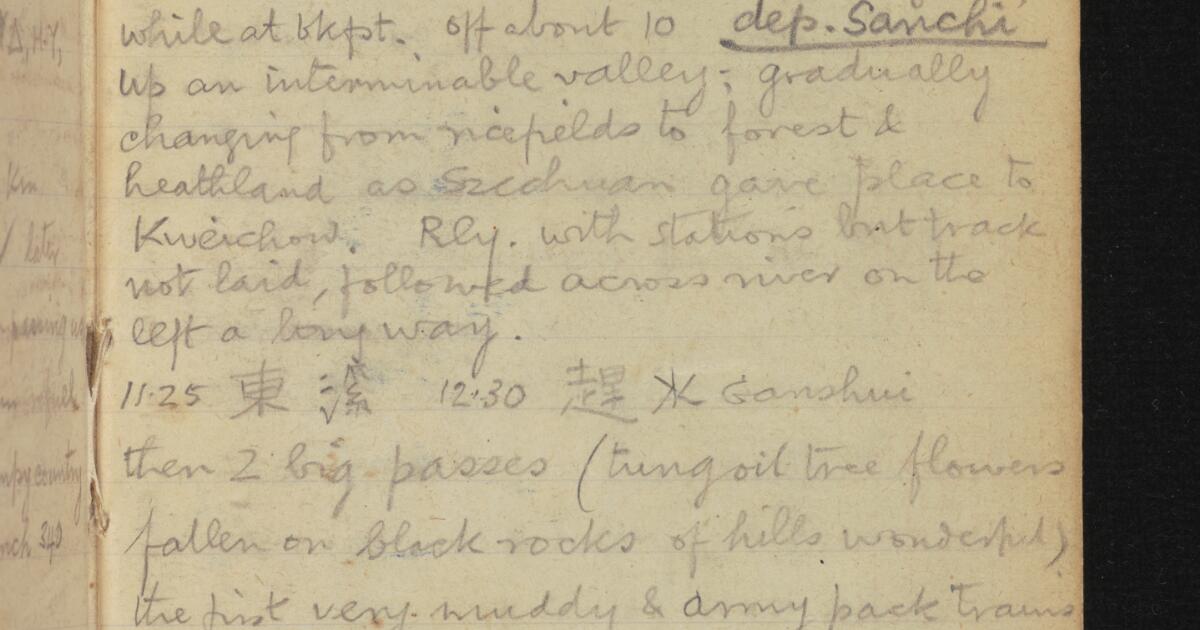 while at bkfst. off about 10 dep. Sanchi
up an interminable valley; gradually
changing from ricefields to forest &
heathland as Szechuan gave place to
Kweichow. Rly. with stations but track
not laid, followed across river on the
left a long way.
11.25 東溪 12.30 趕水 Ganshui
then 2 big passes (tung oil tree flowers
fallen on black rocks of hills wonderful)
the first very muddy & army pack trains